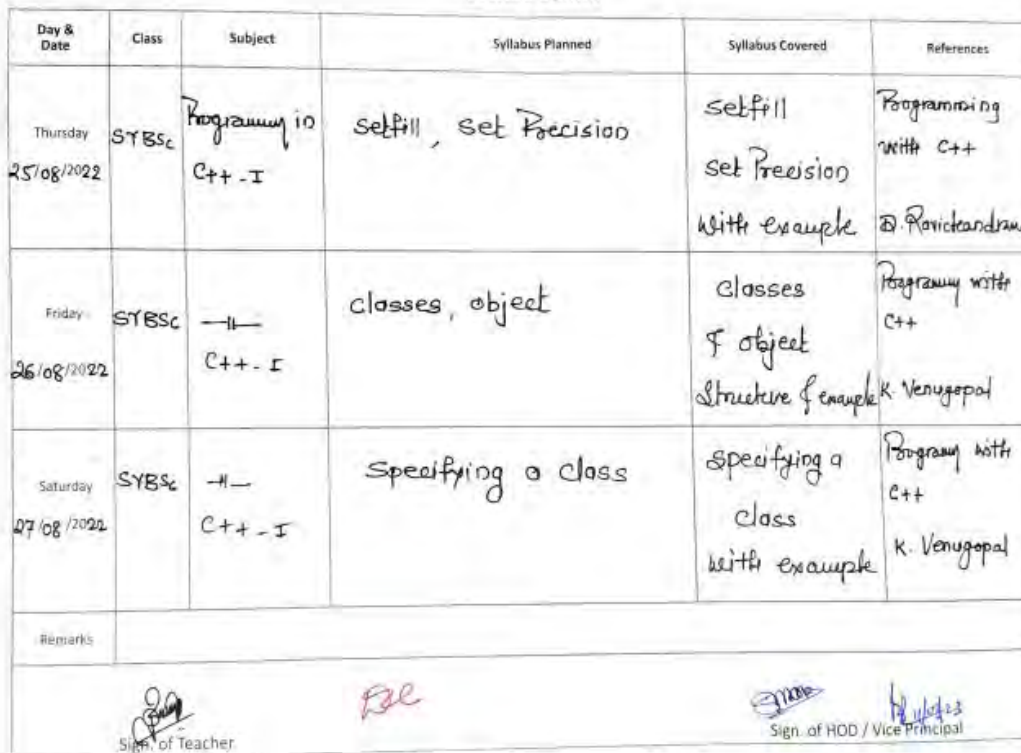 Day & Date Class Subject Syllabus Planned Syllabus Covered References
Thursday 25/08/2022 SYBSc Programming in C++-I setfill, set Precision setfill set Precision with example Programming with C++ D. Ravichandran
Friday 26/08/2022 SYBSc —॥— C++-I classes, object classes & object structure & example Programing with C++ K. Venugopal
Saturday 27/08/2022 SYBSc —॥— C++-I Specifying a class specifying a class with example Programing with C++ K. Venugopal
Remarks
Sign. of Teacher Sign. of HOD / Vice Principal